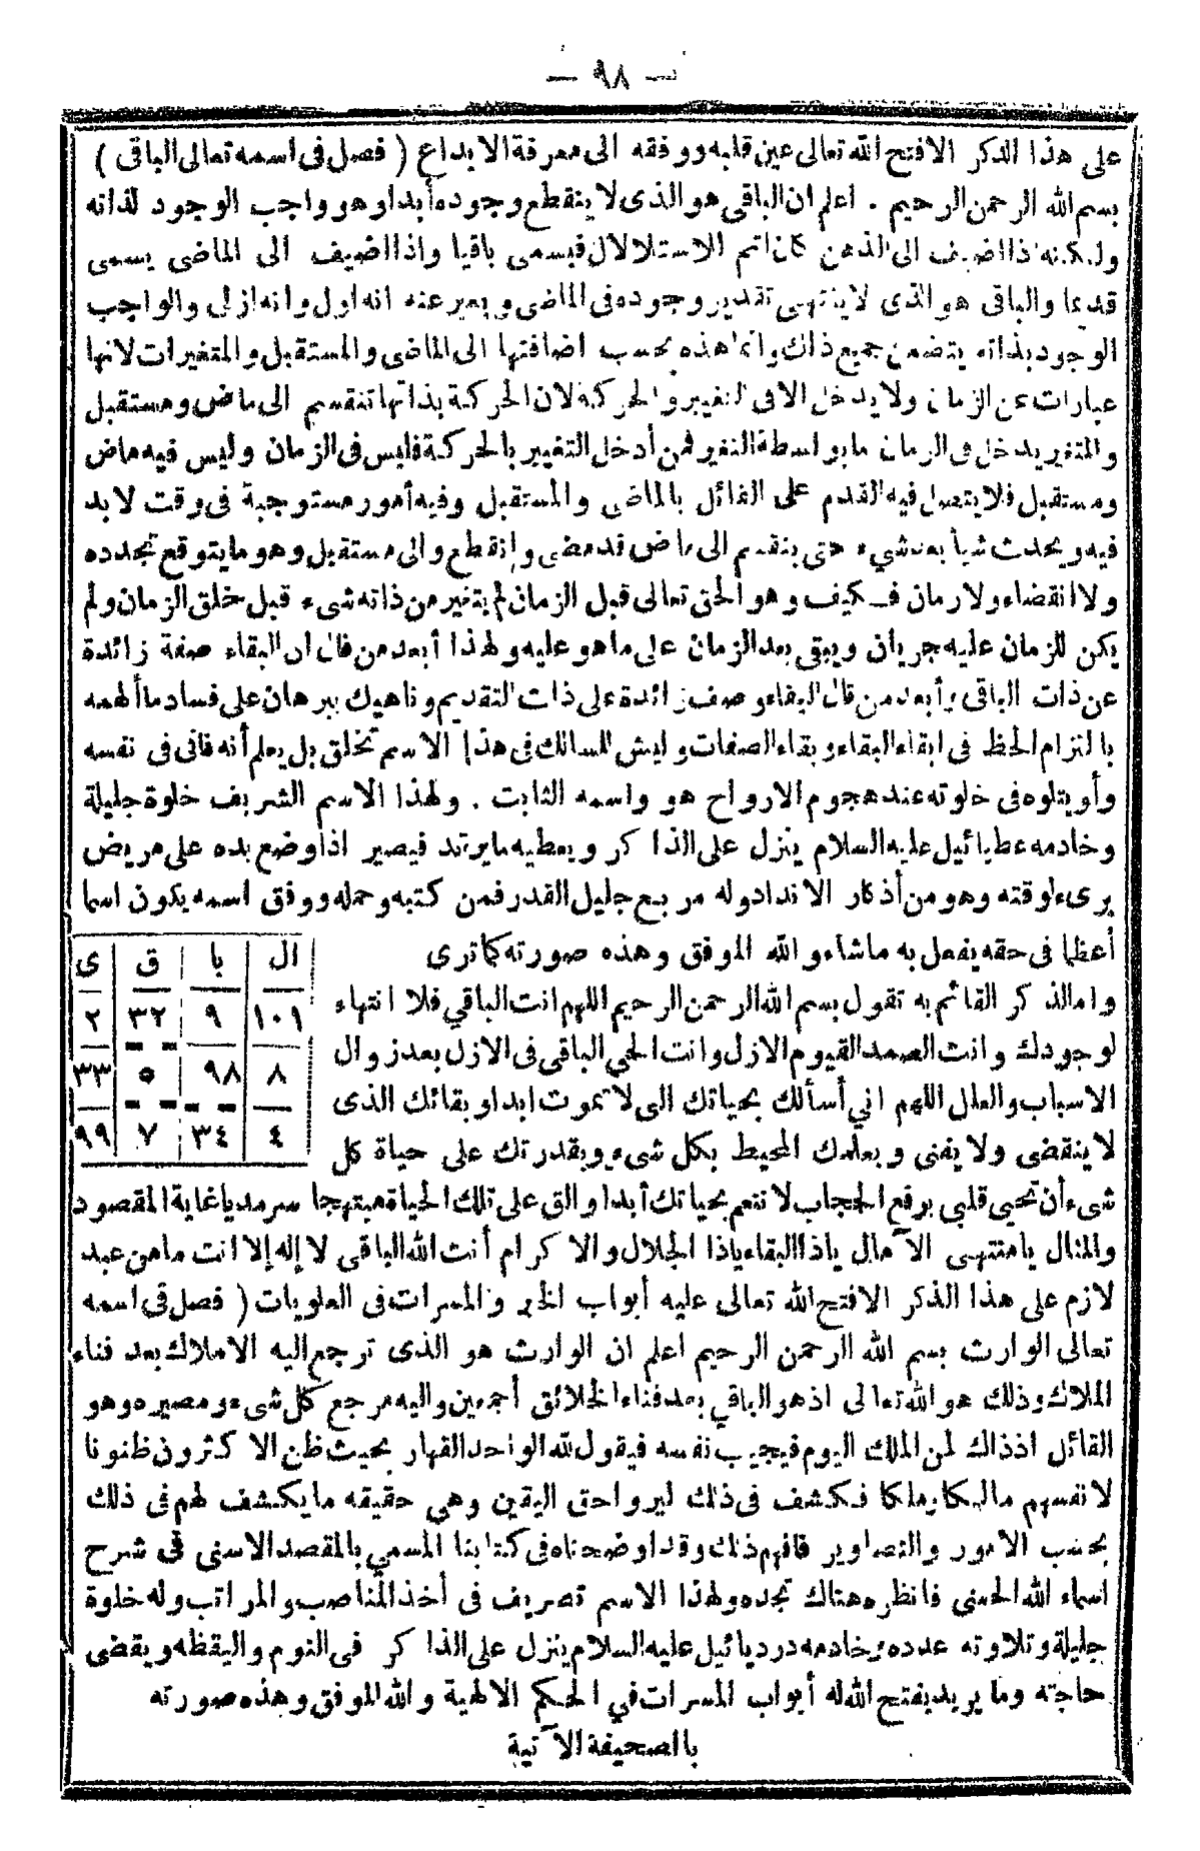 — ٩٨ —
على هذا الذكر الافتح الله تعالى عين قلبه ووفقه الى معرفة الابداع ( فصل فى اسمه تعالى الباقى )
بسم الله الرحمن الرحيم . اعلم ان الباقى هو الذى لا ينقطع وجوده أبدا وهو واجب الوجود لذاته
ولكنه اذا اضيف الى الذهن كان اتم الاستلال فيسمى باقيا واذا اضيف الى الماضى يسمى
قديما والباقى هو الذى لا ينتهى تقدير وجوده فى الماضى ويعبر عنه انه اول وانه ازلى والواجب
الوجود بذاته يتضمن جميع ذلك وانما هذه بحسب اضافتها الى الماضى والمستقبل والمتغيرات لانها
عبارات عن الزمان ولا يدخل الا فى التغيير والحركة لان الحركة بذاتها تنقسم الى ماض ومستقبل
والمتغير يدخل فى الزمان ما بواسطة التغير فمن أدخل التغيير بالحركة فليس فى الزمان وليس فيه ماض
ومستقبل فلا يتصل فيه القدم على القائل بالماضى والمستقبل وفيه أمور مستوجبة فى وقت لابد
فيه ويحدث شيأ بعد شىء حتى ينقسم الى ماض قد مضى وانقطع والى مستقبل وهو ما يتوقع تجدده
ولا انقضاء ولا زمان فكيف وهو الحق تعالى قبل الزمان لم يتغير من ذاته شىء قبل خلق الزمان ولم
يكن للزمان عليه جريان ويبقى بعد الزمان على ما هو عليه ولهذا أبعد من قال ان البقاء صفة زائدة
عن ذات الباقى وأبعد من قال البقاء وصف زائدة على ذات التقديم وناهيك ببرهان على فساد ما ألهمه
بالتزام الحظ فى ابقاء البقاء وبقاء الصفات وليش للسالك فى هذا الاسم تخلق بل يعلم أنه فانى فى نفسه
وأو يتلوه فى خلوته عند هجوم الارواح هو واسمه الثابت . ولهذا الاسم الشريف خلوة جليلة
وخادمه عطيائيل عليه السلام ينزل على الذاكر ويعطيه ما يريد فيصير اذا وضع يده على مريض
برىء لوقته وهو من أذكار الانداد وله مربع جليل القدر فمن كتبه وحمله ووفق اسمه يكون اسما
أعظما فى حقه يفعل به ما شاء والله الموفق وهذه صورته كما ترى
ال | با | ق | ى
١٠١ | ٩ | ٣٢ | ٢
٨ | ٩٨ | ٥ | ٣٣
٤ | ٣٤ | ٧ | ٩٩
واما لذكر القائم به تقول بسم الله الرحمن الرحيم اللهم انت الباقي فلا انتهاء
لوجودك وانت الصمد القيوم الازل وانت الحي الباقى فى الازل بعد زوال
الاسباب والعلل اللهم اني أسألك بحياتك التى لا تموت ابدا وبقائك الذى
لا ينقضى ولا يفنى وبعلمك المحيط بكل شىء وبقدرتك على حياة كل
شىء أن تحيى قلبي برفع الحجاب لاتنعم بحياتك أبدا والق على تلك الحياة مبتهجا سرمد يا غاية المقصود
والمنال يا منتهى الآمال يا ذا البقاء يا ذا الجلال والاكرام أنت الله الباقى لا إله إلا انت ما من عبد
لازم على هذا الذكر الافتح الله تعالى عليه أبواب الخير والمسرات فى العلويات ( فصل فى اسمه
تعالى الوارث بسم الله الرحمن الرحيم اعلم ان الوارث هو الذى ترجع اليه الاملاك بعد فناء
الملاك وذلك هو الله تعالى اذ هو الباقي بعد فناء الخلائق أجمعين واليه مرجع كل شىء ومصيره وهو
القائل اذ ذاك لمن الملك اليوم فيجيب نفسه فيقول لله الواحد القهار بحيث ظن الاكثرون ظنونا
لانفسهم مالكا وملكا فكشف فى ذلك ليروا حق اليقين وهي حقيقه ما يكشف لهم فى ذلك
بحسب الامور والتصاوير فافهم ذلك وقد اوضحناه فى كتابنا المسمى بالمقصد الاسنى فى شرح
اسماء الله الحسنى فانظره هناك تجده ولهذا الاسم تصريف فى أخذ المناصب والمراتب وله خلوة
جليلة وتلاوته عدده وخادمه دردیائيل عليه السلام ينزل على الذاكر فى النوم واليقظه ويقضى
حاجته وما يريد يفتح الله له أبواب المسرات في الحكم الالهية والله الموفق وهذه صورته
بالصحيفة الآتية